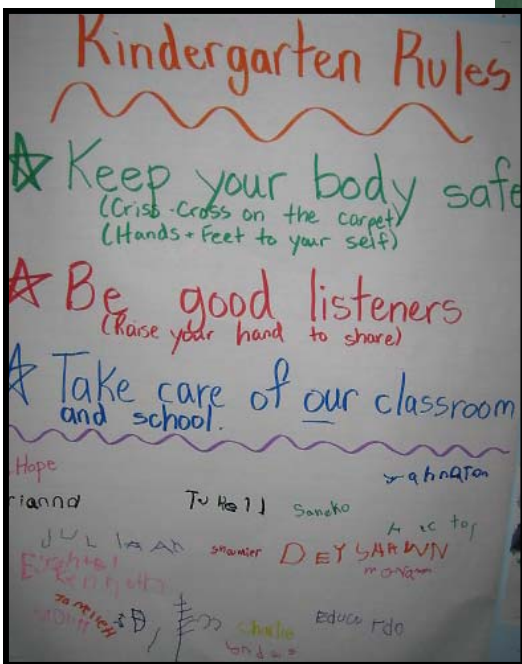 Kindergarten Rules
Keep your body safe
(Criss-Cross on the carpet)
(Hands + Feet to your self)
Be good listeners
(Raise your hand to share)
Take care of our classroom
and school.
Hope
rianna
Sancho
JULIAAN
shaumier
DEYSHAWN
morgan
Charlie
Eduardo